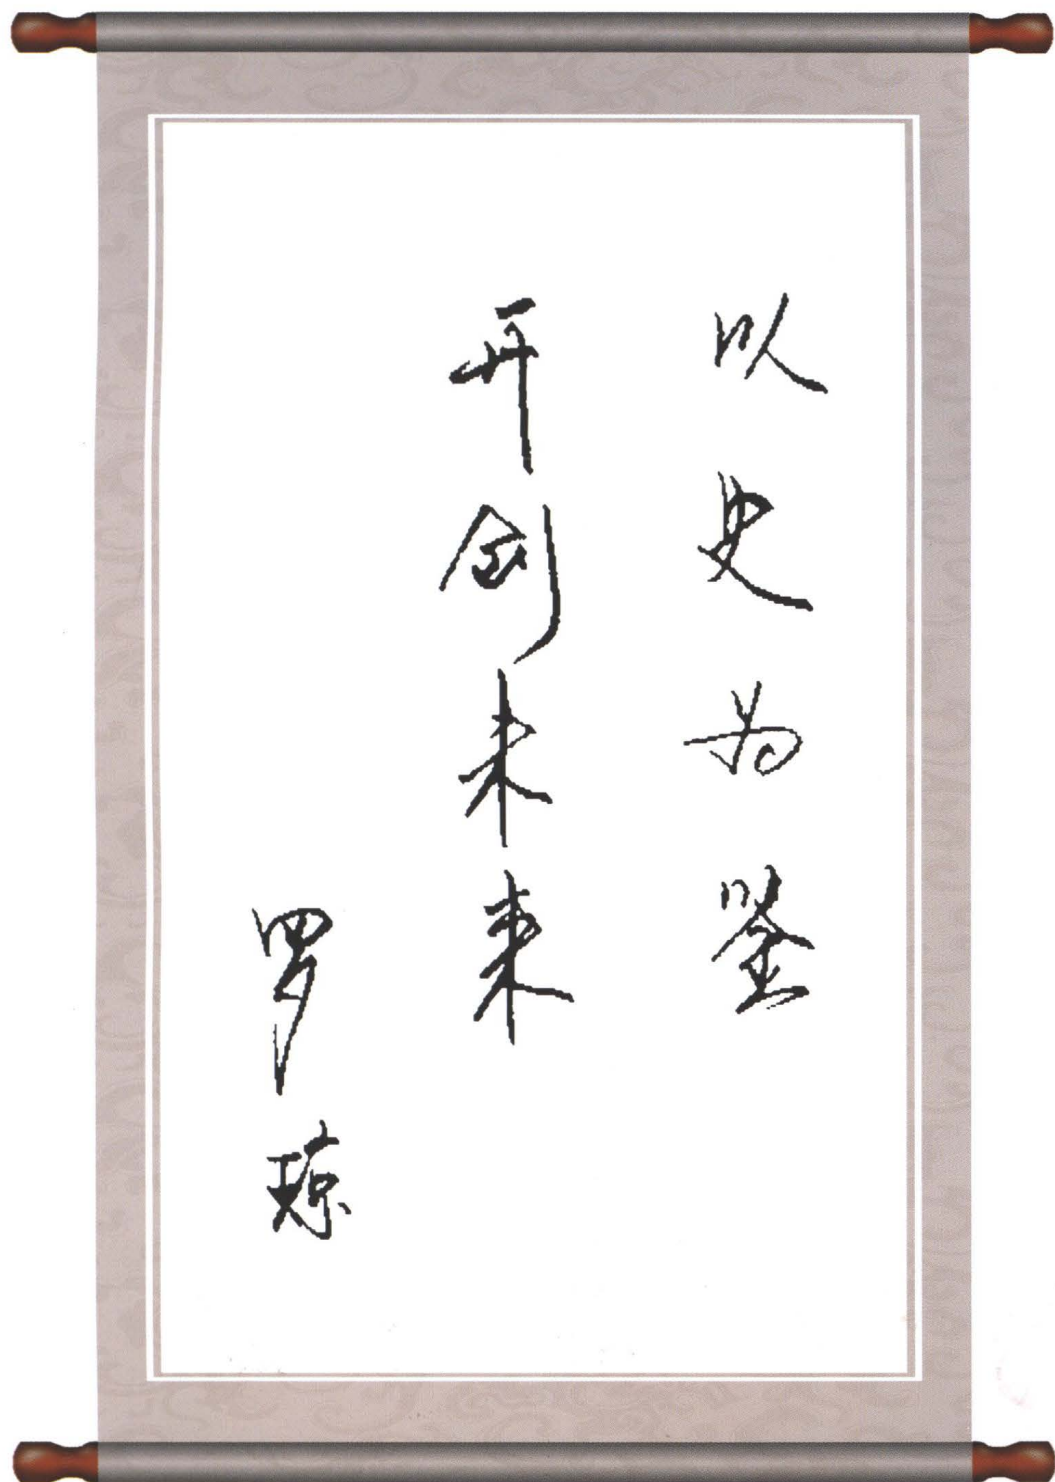 以史为鉴
开创未来
罗琼